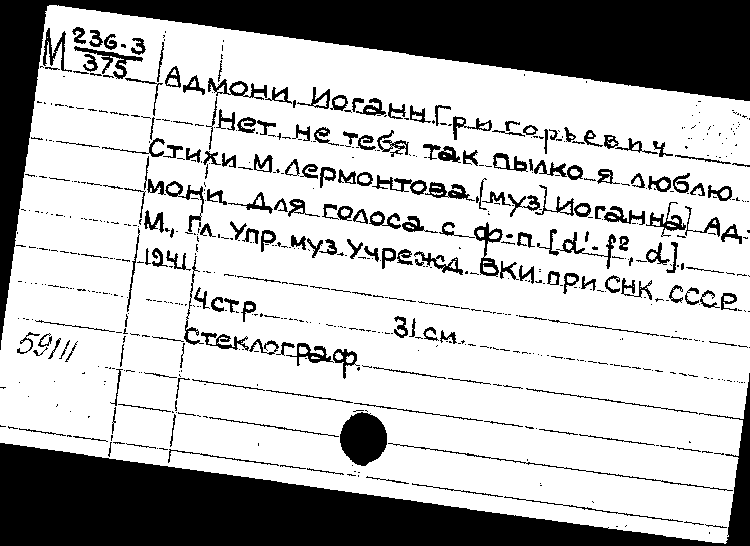 М 236-3
375
Адмони, Иоганн Григорьевич
Нет, не тебя так пылко я люблю.
Стихи М. Лермонтова, [муз] Иоганн[а] Ад-
мони. Для голоса с ф-п. [d'-f², d].
М., Гл. Упр. муз. Учрежд. ВКИ при СНК СССР
1941.
4 стр. 31 см.
Стеклограф.
59111